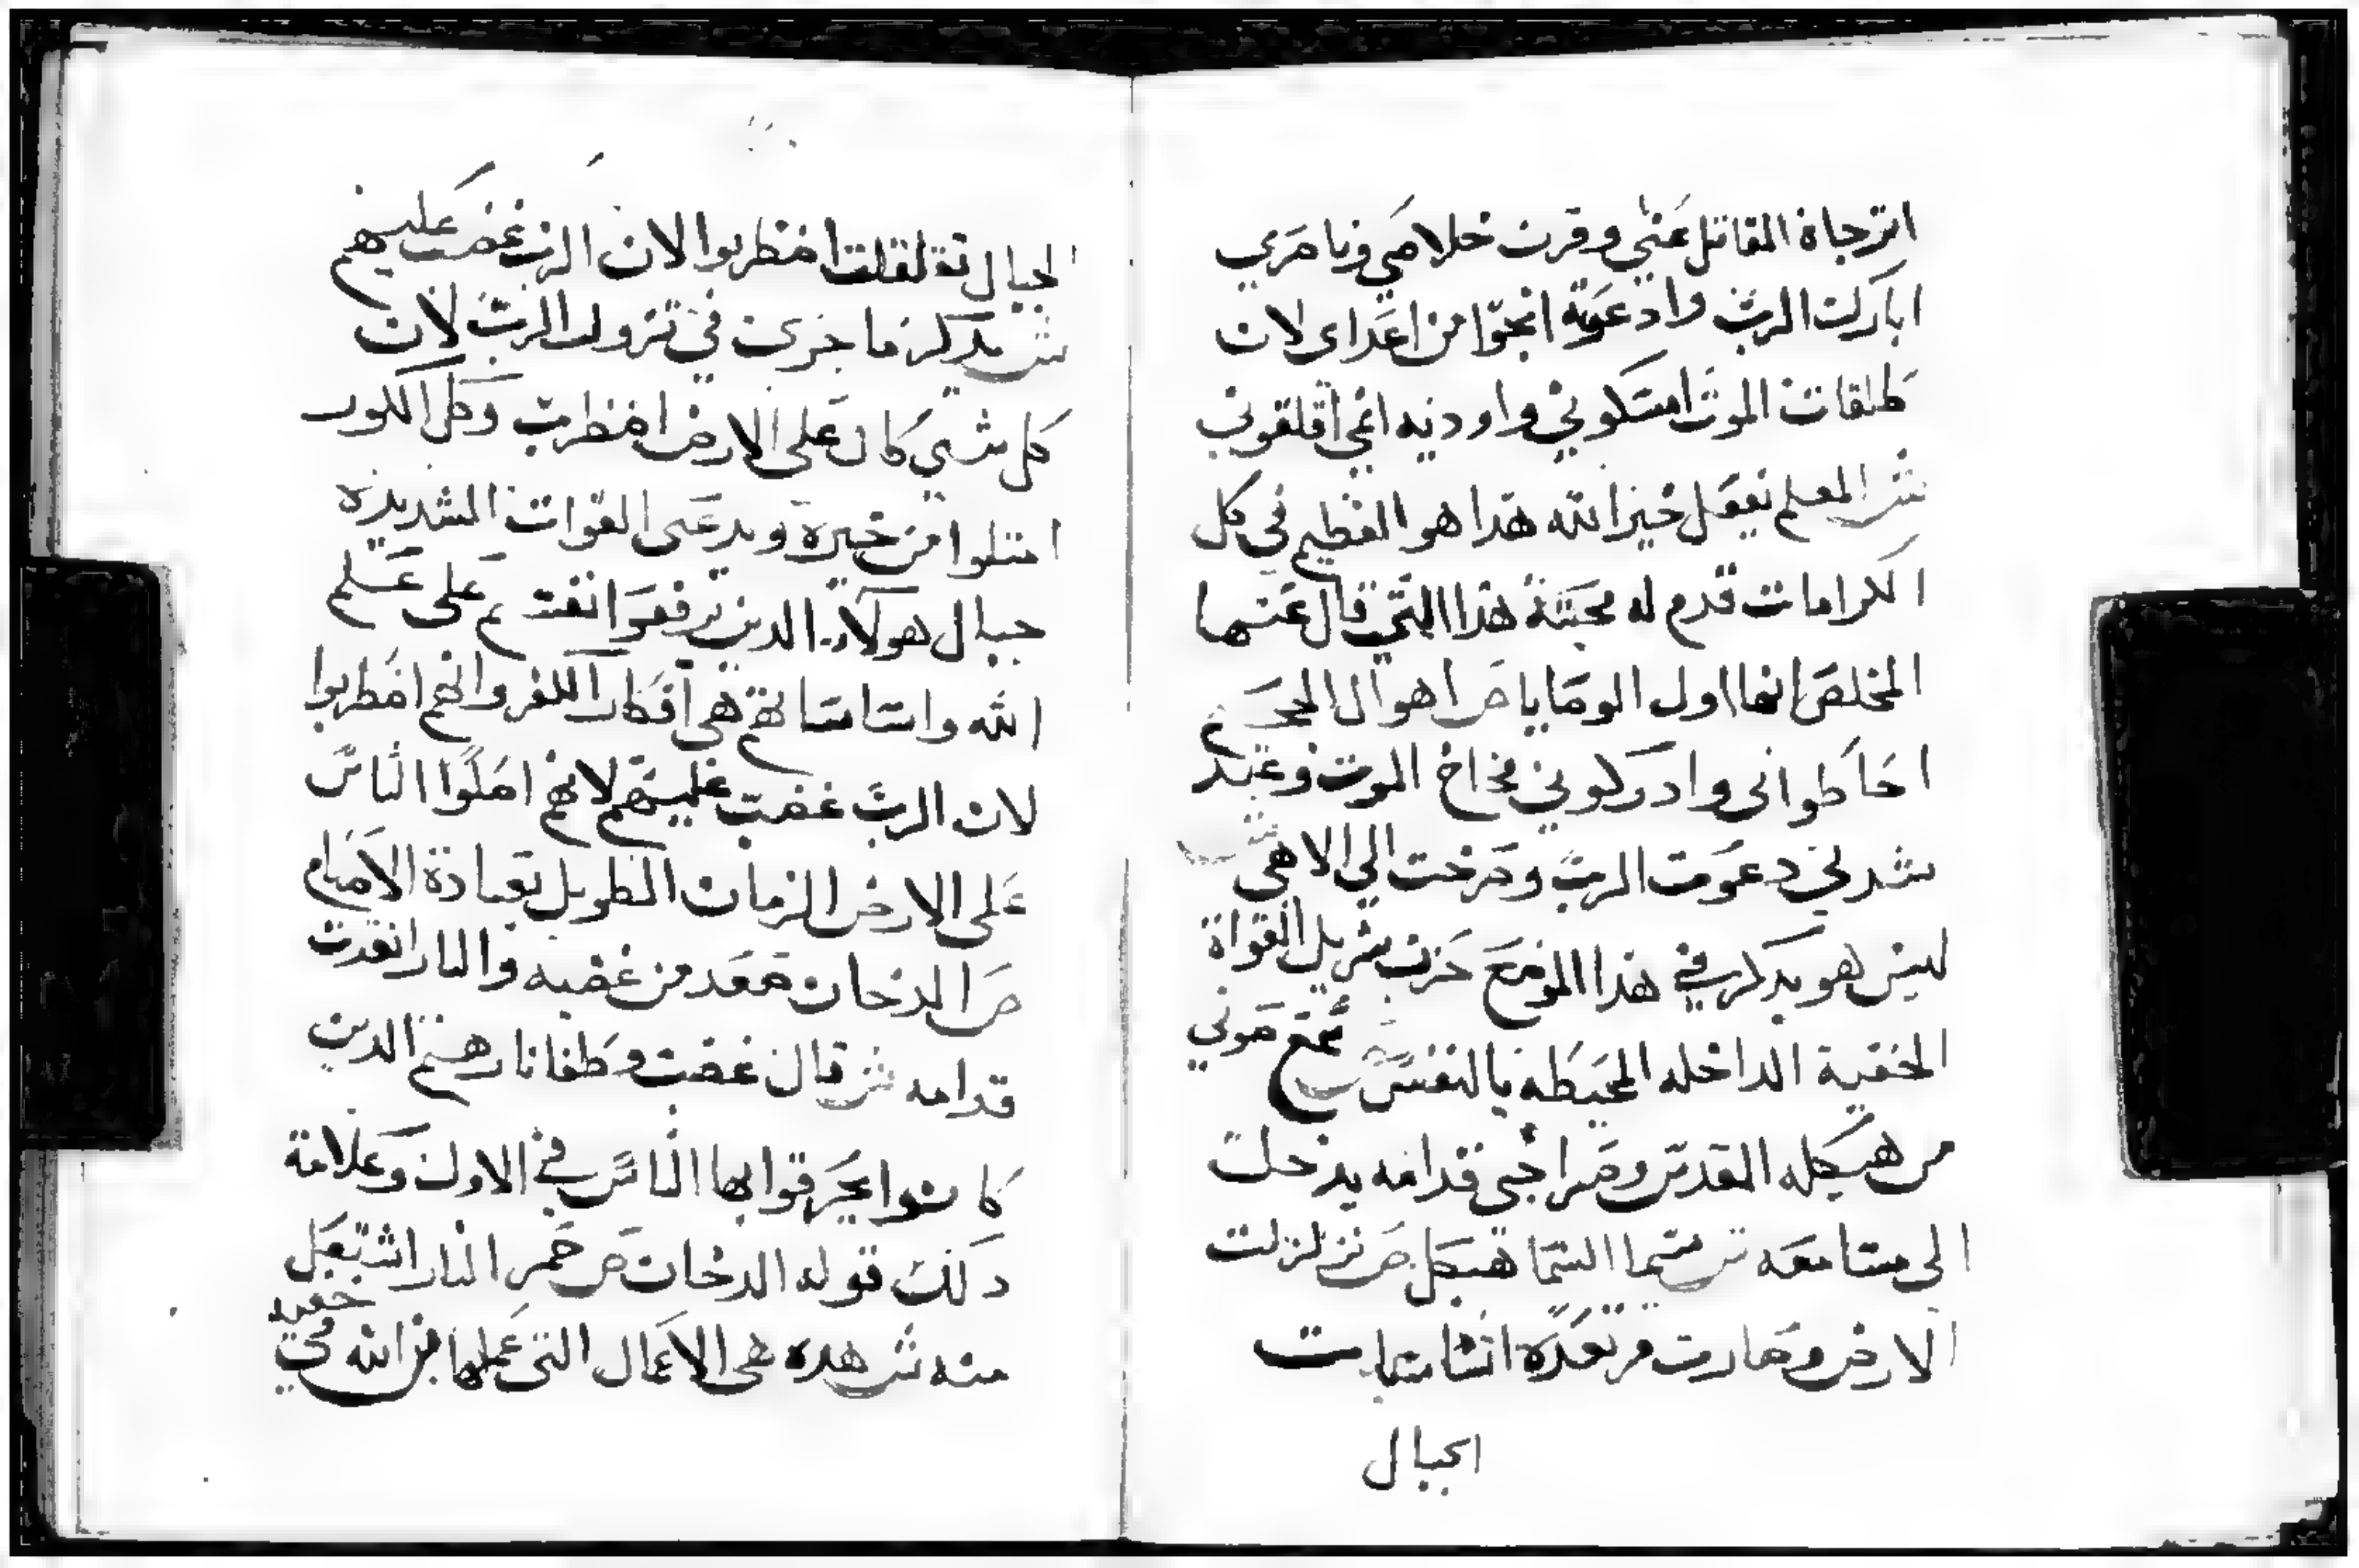 اترجاة المقاتل عني وقرن خلاصي وناصري
ابارك الرب وادعوة انجوا من اعداى لان
طلقات الموت امسكوني واوديه اثمي اقلقوني
ش المعلم نفعل خيرا لله هدا هو العظيم في كل
الكرامات قدم له محبتة هذا التي قال عنها
المخلص انها اول الوصايا ص اهوال الجحيم
احاطوا نى وادركوني فخاخ الموت وعند
شدني دعوت الرب وصرخت الي الاهي ش
ليس هو يدكر في هذا الموضع حزب يزيل القواة
الخفية الداخله المحيطه بالنفس ص سمع صوتي
من هيكله القدس وصراخي قدامه يدخل
الى مسامعه ش سما السما هيكل ص تزلزلت
الارض وصارت مرتعدة اساسات
الجبال
الجبال تقلقلت اضطربوا لان الرب غضب عليهم
ش يدكر ما جرى في نزول الرب لان
كل شي كان على الارض اضطرب وكل الكور
امتلوا من خيرة ويدعى القوات الشديدة
جبال هولاء الدين ترفعوا نفسهم على علم
الله واساساتهم هي افكار الكفر وانهم اضطربوا
لان الرب غضب عليهم لانهم اضلوا الناس
على الارض الزمان الطويل بعبادة الاصنام
ص الدخان صعد من غضبه والنار اتقدت
قدامه ش قال غضب وطفا نارهم الدين
كانوا يحرقوا بها الناس في الاول وعلامة
دلك قوله الدخان ص جمر النار اشتعل
منه ش هده هي الاعمال التي عملها من الله في خفيه